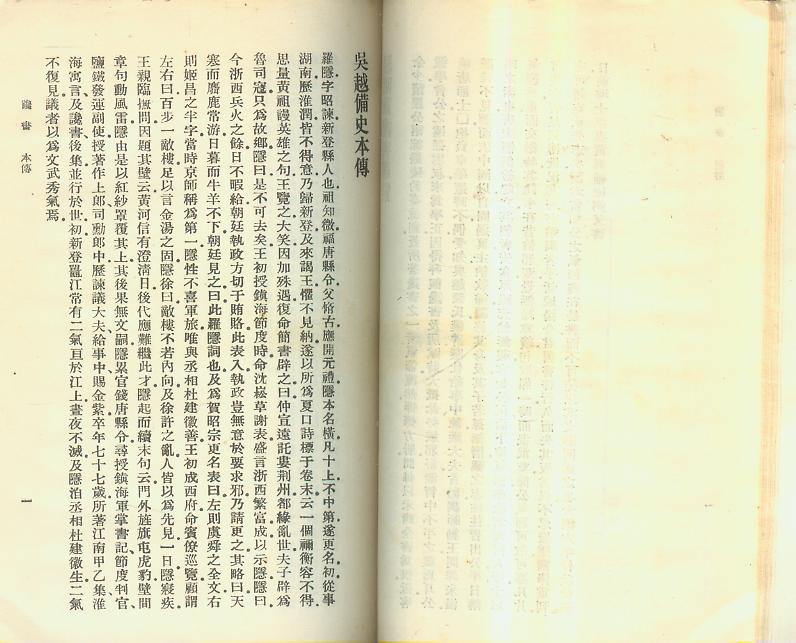 吳越備史本傳
羅隱字昭諫新登縣人也祖知微福唐縣令父脩古應開元禮隱本名橫凡十上不中第遂更名初從事
湖南歷淮潤皆不得意乃歸新登及來謁王懼不見納遂以所爲夏口詩標于卷末云一個禰衡容不得
思量黃祖謾英雄之句王覽之大笑因加殊遇復命簡書辟之曰仲宣遠託婁荆州都緣亂世夫子辟爲
魯司寇只爲故鄉隱曰是不可去矣王初授鎮海節度時命沈崧草謝表盛言浙西繁富成以示隱隱曰
今浙西兵火之餘日不暇給朝廷執政方切于賄賂此表入執政豈無意於要求邪乃請更之其略曰天
寒而麋鹿常游日暮而牛羊不下朝廷見之曰此羅隱詞也及爲賀昭宗更名表曰左則虞舜之全文右
則姬昌之半字當時京師稱爲第一隱性不喜軍旅唯與丞相杜建徽善王初成西府命賓僚巡覽顧謂
左右曰百步一敵樓足以言金湯之固隱徐曰敵樓不若內向及徐許之亂人皆以爲先見一日隱寢疾
王親臨撫問因題其壁云黃河信有澄清日後代應難繼此才隱起而續末句云門外旌旗屯虎豹壁間
章句動風雷隱由是以紅紗罩覆其上其後果無文嗣隱累官錢唐縣令尋授鎮海軍掌書記節度判官
鹽鐵發運副使授著作上郎司勳郎中歷諫議大夫給事中賜金紫卒年七十七歲所著江南甲乙集淮
海寓言及讒書後集並行於世初新登鼉江常有二氣亘於江上晝夜不滅及隱洎丞相杜建徽生二氣
不復見議者以爲文武秀氣焉
讒書 本傳
一